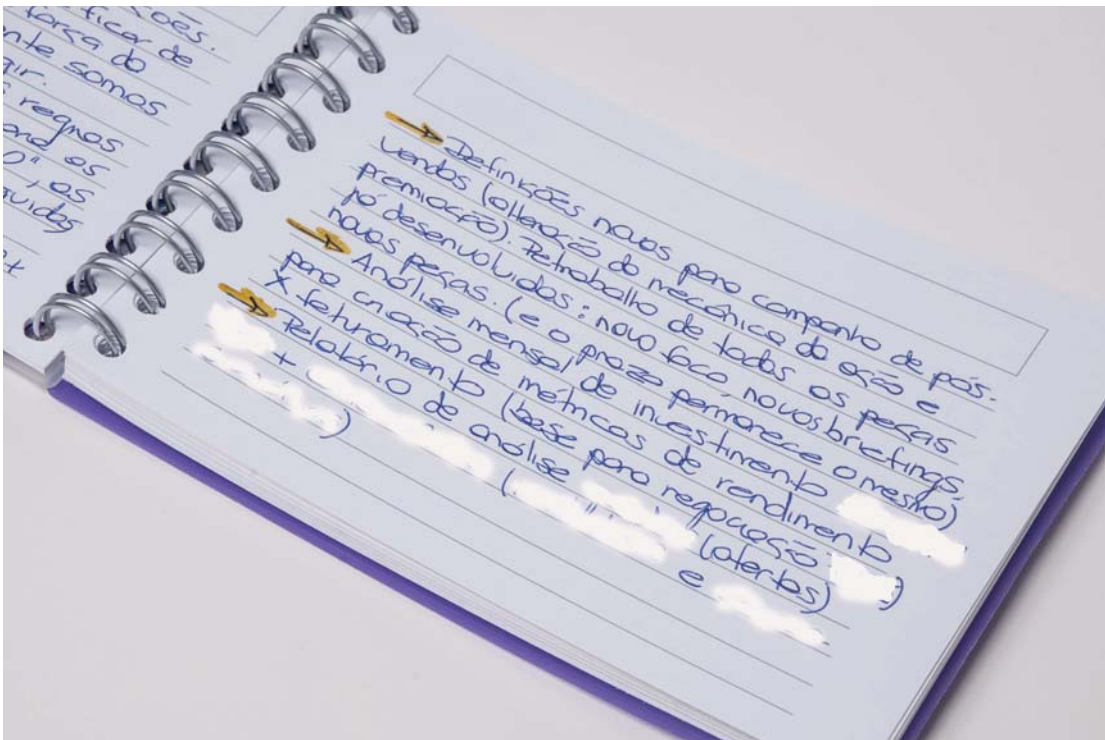 ções.
ficar de
força do
nte somos
gir.
regras
os
O", os
uidos
→ Definições novas para campanha de pós-
vendas (alteração da mecânica da ação e
premiação). Retrabalho de todas as peças
já desenvolvidas: novo foco, novos briefings,
novas peças. (e o prazo permanece o mesmo)
→ Análise mensal de investimento
para criação de métricas de rendimento
X faturamento (base para negociação )
→ Relatório de análise (alertas)
+ ( e
)